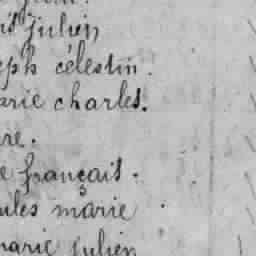 is julien
eph célestin.
arie charles.
re.
e français.
ules marie
marie julien